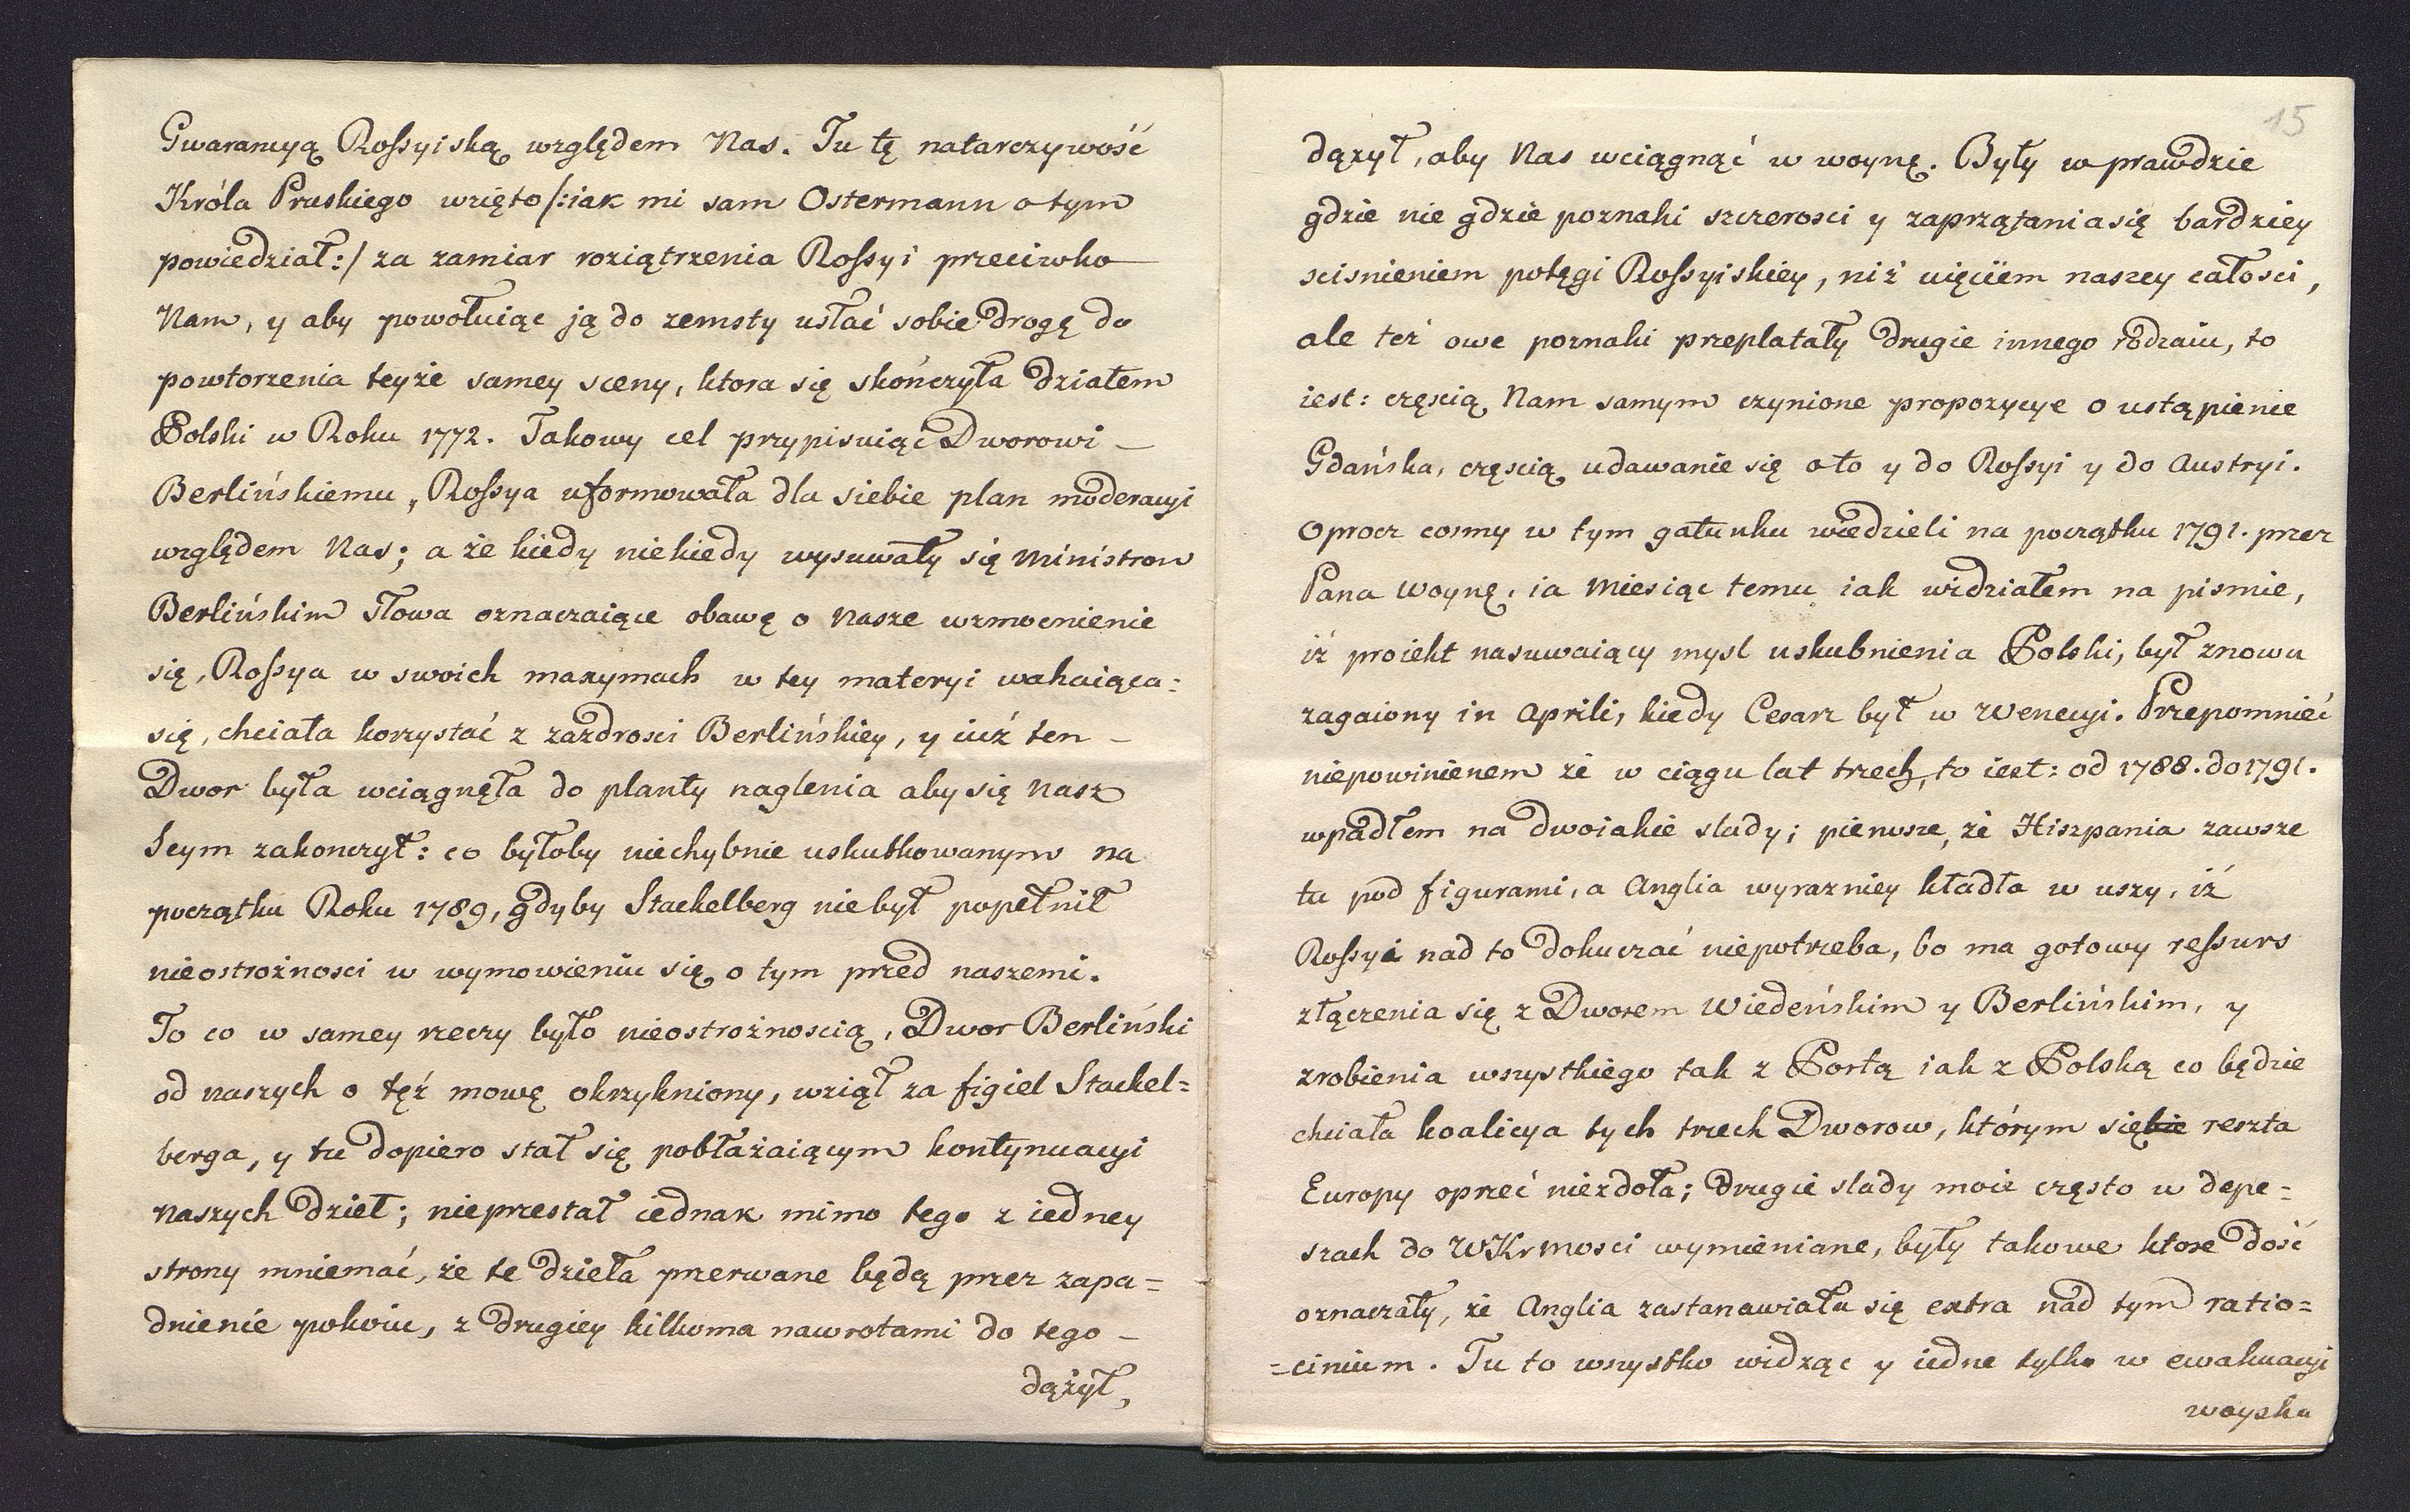 Gwarancyą Rossyiską względem Nas. Tu tę natarczywość
Króla Pruskiego wzięto /:iak mi sam Ostermann o tym
powiedział:/ za zamiar roziątrzenia Rossyi przeciwko
Nam, y aby powołuiąc ją do zemsty usłać sobie drogę do
powtorzenia teyże samey sceny, ktora się skończyła działem
Polski w Roku 1772. Takowy cel przypisuiąc Dworowi –
Berlińskiemu, Rossya uformowała dla siebie plan moderacyi
względem Nas; a że kiedy niekiedy wysuwały się Ministrom
Berlińskim słowa oznaczaiące obawę o Nasze wzmocnienie
się, Rossya w swoich maxymach w tey materyi wahaiąca=
się, chciała korzystać z zazdrosci Berlińskiey, y iuż ten –
Dwor była wciągnęła do planty naglenia aby się Nasz
Seym zakonczył: co byłoby niechybnie uskutkowanym na
początku Roku 1789, gdyby Stackelberg niebył popełnił
nieostrożnosci w wymowieniu się o tym przed naszemi.
To co w samey rzeczy było nieostrożnoscią, Dwor Berliński
od naszych o też mowę okrzykniony, wziął za figiel Stackel=
berga, y tu dopiero stał się pobłażaiącym kontynuacyi
Naszych dzieł; nieprzestał iednak mimo tego z iedney
strony mniemać, że te dzieła przerwane będą przez zapa=
dnienie pokoiu, z drugiey kilkoma nawrotami do tego –
dążył,
15
dążył, aby Nas wciągnąć w woynę. Były wprawdzie
gdzie nie gdzie poznaki szczerosci y zaprzątania się bardziey
scisnieniem potęgi Rossyiskiey, niż uięciem naszey całosci,
ale też owe poznaki przeplatały drugie innego rodzaiu, to
iest: częscią Nam samym czynione propozycye o ustąpienie
Gdańska, częscią udawanie się o to y do Rossyi y do Austryi.
Oprocz cosmy w tym gatunku wiedzieli na początku 1791. przez
Pana Woynę, ia Miesiąc temu iak widziałem na pismie,
iż proiekt nasuwaiący mysl uskubnienia Polski, był znowu
zagaiony in Aprili, kiedy Cesarz był w Wenecyi. Przepomnieć
niepowinienem że w ciągu lat trzech, to iest: od 1788. do 1791.
wpadłem na dwoiakie slady; pierwsze, że Hiszpania zawsze
tu pod figurami, a Anglia wyrazniey kładła w uszy, iż
Rossyi nad to dokuczać niepotrzeba, bo ma gotowy ressurs
złączenia się z Dworem Wiedeńskim y Berlińskim, y
zrobienia wszystkiego tak z Portą iak z Polską co będzie
chciała koalicya tych trzech Dworow, którym się reszta
Europy oprzeć niezdoła; drugie slady moie często w depe=
szach do WKrMosci wymieniane, były takowe ktore dość
oznaczały, że Anglia zastanawiała się extra nad tym ratio=
=cinium. Tu to wszystko widząc y iedne tylko w ewakuacyi
woyska